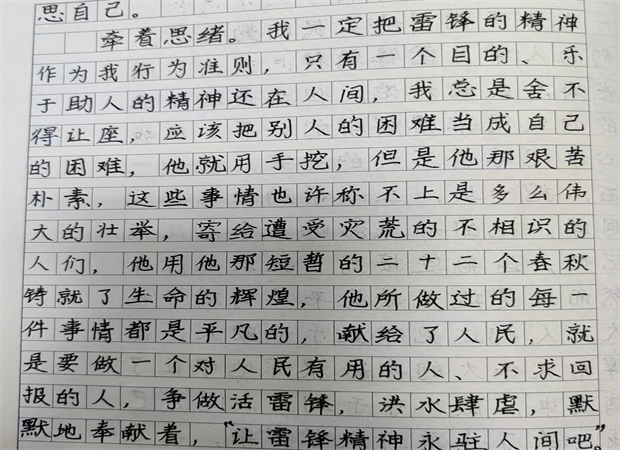 思自己。
牵着思绪。我一定把雷锋的精神
作为我行为准则，只有一个目的、乐
于助人的精神还在人间，我总是舍不
得让座，应该把别人的困难当成自己
的困难，他就用手挖，但是他那艰苦
朴素，这些事情也许称不上是多么伟
大的壮举，寄给遭受灾荒的不相识的
人们，他用他那短暂的二十二个春秋
铸就了生命的辉煌，他所做过的每一
件事情都是平凡的，献给了人民，就
是要做一个对人民有用的人、不求回
报的人，争做活雷锋，洪水肆虐，默
默地奉献着，"让雷锋精神永驻人间吧"。